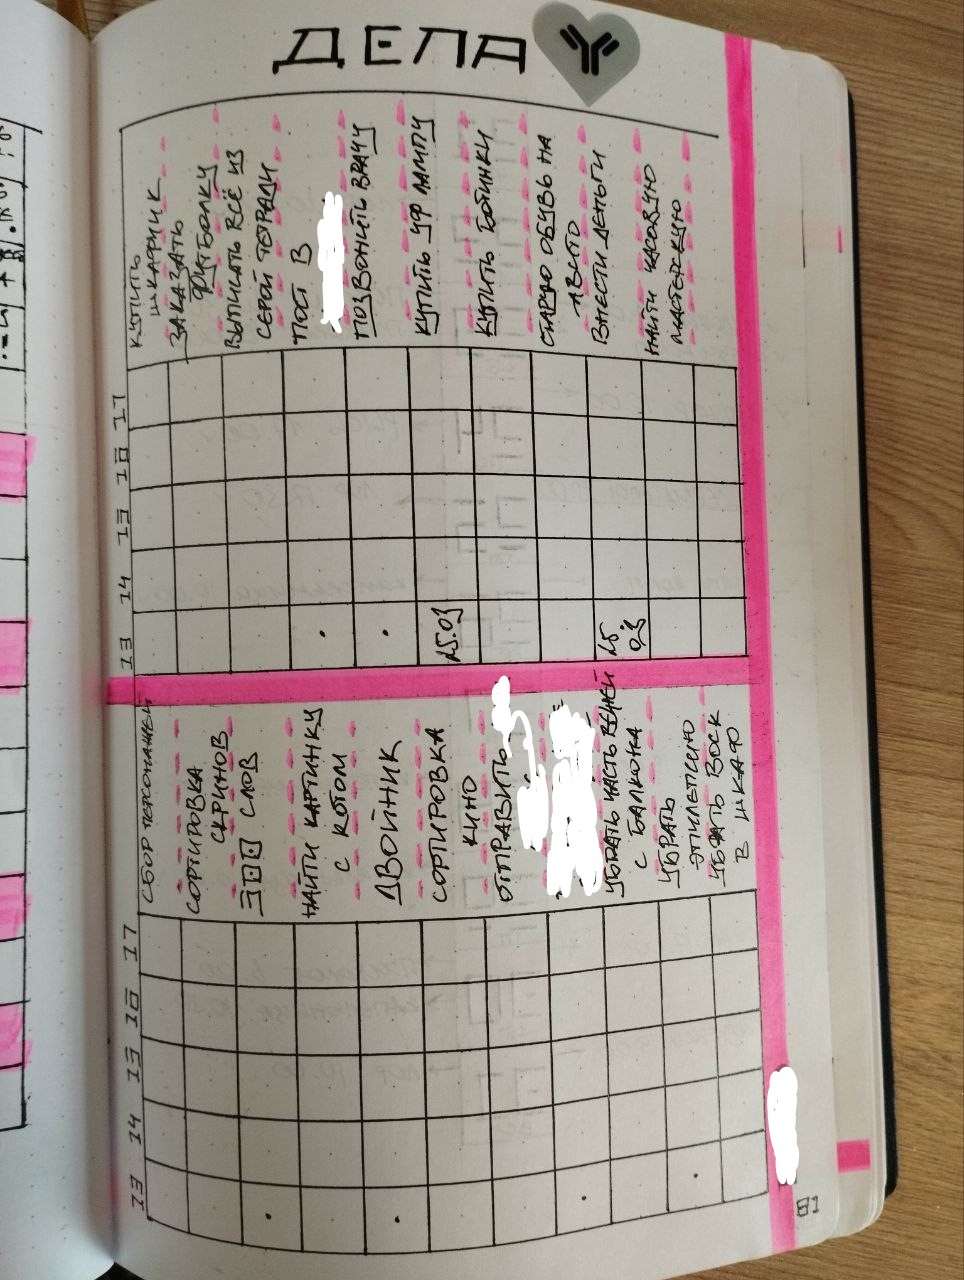 ДЕЛА
КУПИТЬ
ШКАФЧИК
ЗАКАЗАТЬ
ФУТБОЛКУ
ВЫПИСАТЬ ВСЁ ИЗ
СЕРОЙ ТЕТРАДИ
ПОСТ В
ПОЗВОНИТЬ ВРАЧУ
КУПИТЬ УФ ЛАМПУ
КУПИТЬ БОТИНКИ
СТАРУЮ ОБУВЬ НА
АВИТО
ВНЕСТИ ДЕНЬГИ
НАЙТИ ЧАСОВУЮ
МАСТЕРСКУЮ
13 14 15 16 17
25.03
25
03
СБОР ПЕРСОНАЖЕЙ
СОРТИРОВКА
СКРИНОВ
300 СЛОВ
НАЙТИ КАРТИНКУ
С КОТОМ
ДВОЙНИК
СОРТИРОВКА
КИНО
ОТПРАВИТЬ
УБРАТЬ ЧАСТЬ ВЕЩЕЙ
С БАЛКОНА
УБРАТЬ
ЭПИЛЕПСИЮ
УБРАТЬ ВОСК
В ШКАФ
13 14 15 16 17
81